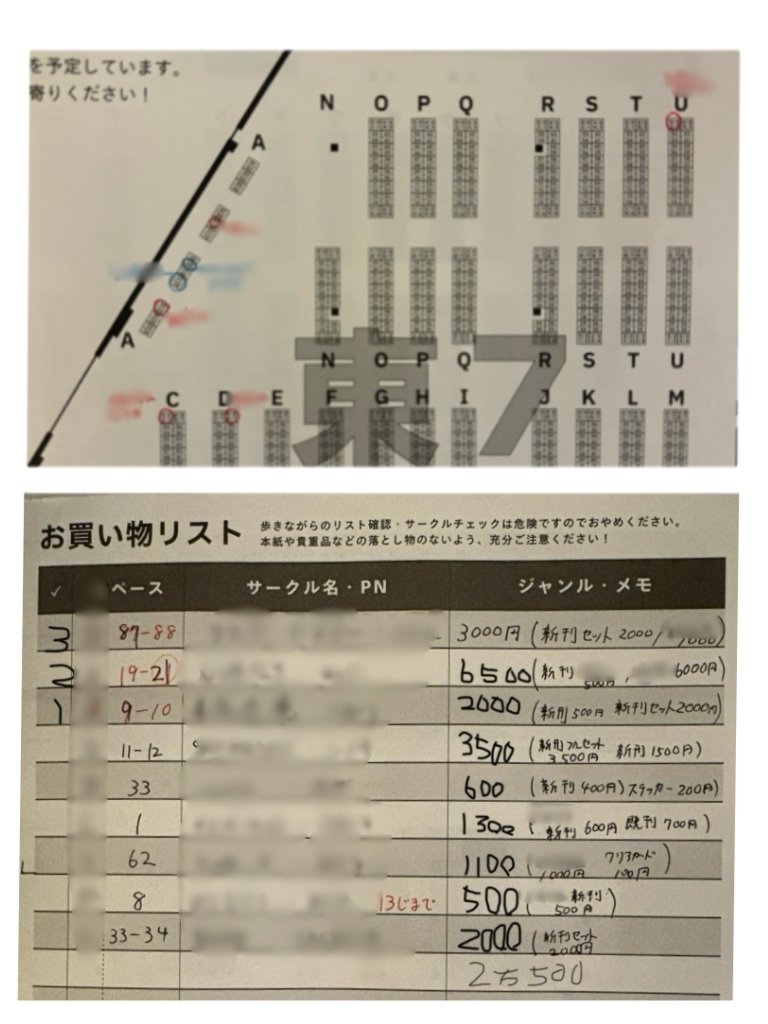 を予定しています。
寄りください！
N O P Q R S T U
A
A
N O P Q R S T U
C D E F G H I J K L M
東7
お買い物リスト
歩きながらのリスト確認・サークルチェックは危険ですのでおやめください。
本紙や貴重品などの落とし物のないよう、充分ご注意ください！
✓ ペース サークル名・PN ジャンル・メモ
3 87-88 3000円 (新刊セット 2000/
2 19-21 6500(新刊 500円, 6000円)
1 9-10 2000 (新刊500円 新刊セット2000円)
11-12 3500 (新刊フルセット 3,500円 新刊1500円)
33 600 (新刊400円)ステッカー200円)
1 1300 (新刊600円 既刊700円)
62 1100 (1000円 クリアカード 100円)
8 13じまで 500 (新刊 500円)
33-34 2000 (新刊セット 2000円
2万500